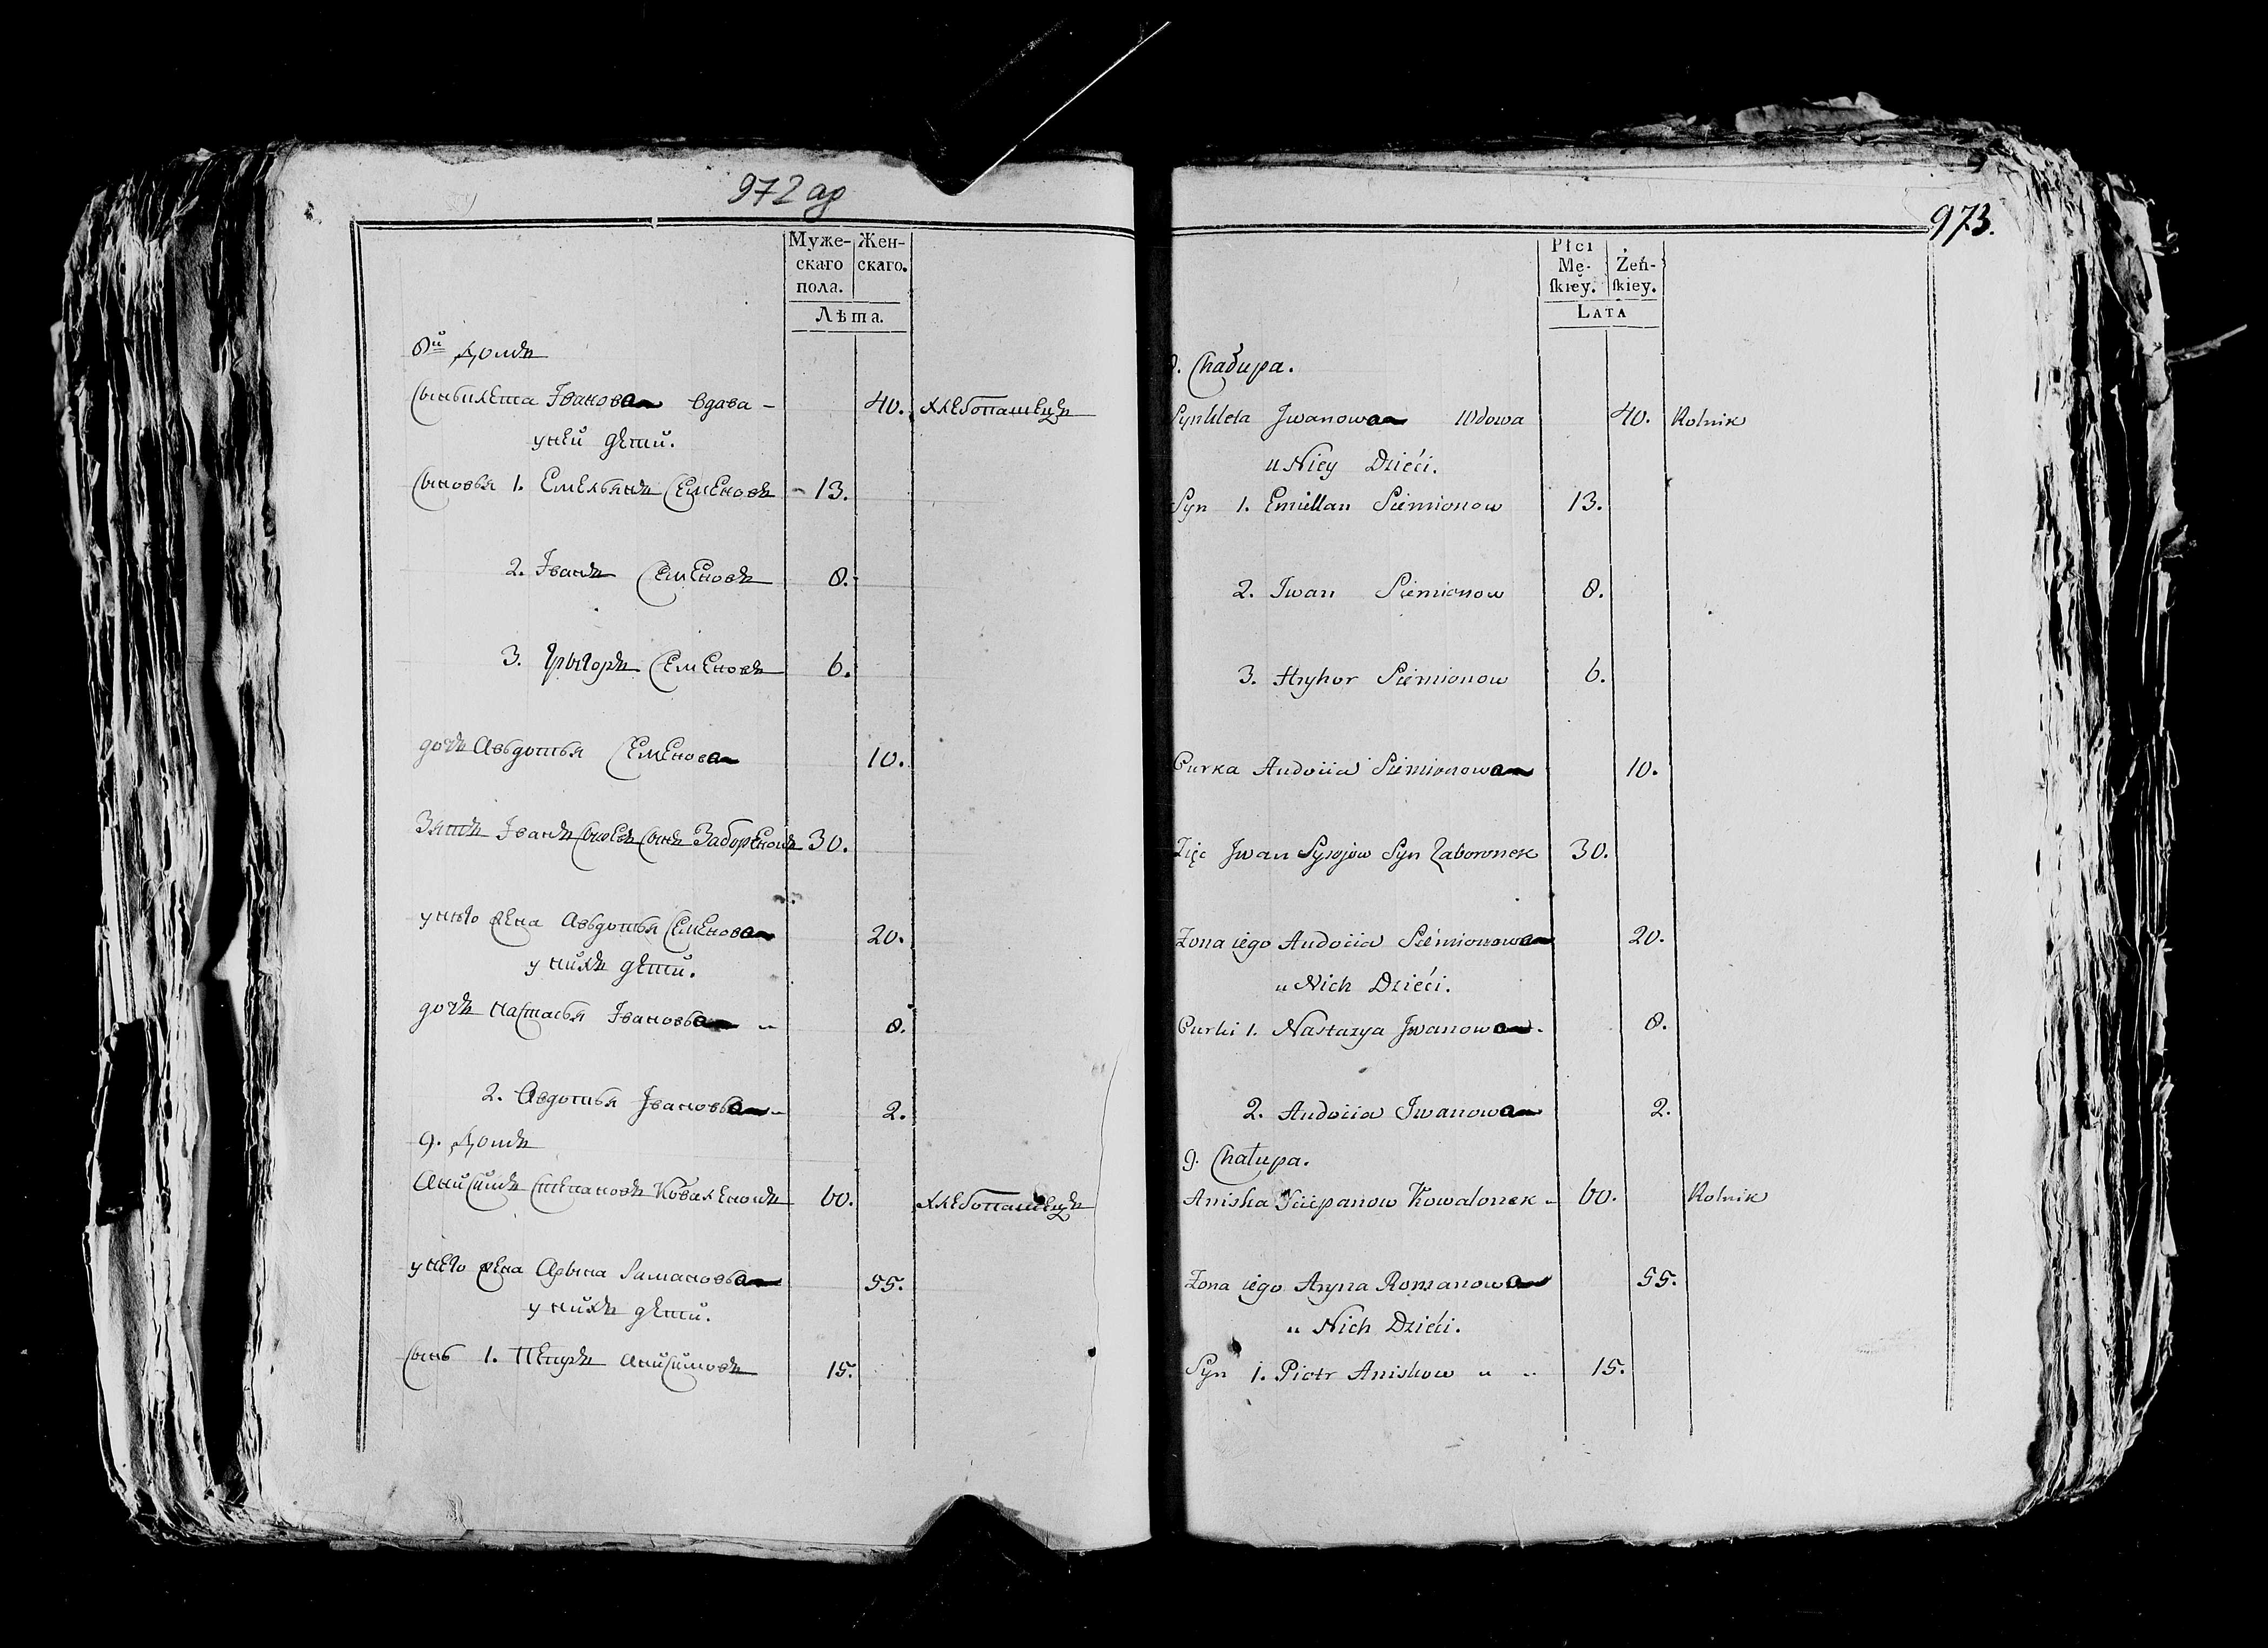 972 ар
Муже- Жен-
скаго скаго.
пола.
Лѣта.
8й Домъ
Сыньклета Iванова вдава - 40. хлебопашецъ
у ней дети.
Сыновья 1. Емельянъ Семеновъ - 13.
2. Iванъ Семеновъ 8.
3. Грыгоръ Семеновъ 6.
дочъ Авьдотья Семенова 10.
Зятъ Iванъ Сысоевъ Сынъ Заборенокъ 30.
у него жена Авьдотья Семенова 20.
у нихъ дети.
дочъ Настасья Iвановьа 8.
2. Авдотья Iвановьа 2.
9. Домъ
Анисимъ Степановъ Коваленокъ 60. хлебопашецъ
у него жена Арына Рамановьа 55.
у нихъ дети.
Сынь 1. Петръ Анисимовъ 15.
973.
Płci
Mę- Żeń-
ſkiey. ſkiey.
LATA
8. Chałupa.
Synkleta Jwanowa Wdowa 40. Rolnik
u Niey Dzieći.
Syn 1. Emiellan Siemionow 13.
2. Iwan Siemionow 8.
3. Hryhor Siemionow 6.
Curka Audociia Siemionowa 10.
Zięc Jwan Sysojow Syn Zaboronek 30.
Zona iego Audociia Siemionowa 20.
u Nich Dzieći.
Curki 1. Nastazya Jwanowa 8.
2. Audociia Jwanowa 2.
9. Chałupa.
Aniska Sciepanow Kowalonek 60. Rolnik
Zona iego Aryna Romanowa 55.
u Nich Dzieći.
Syn 1. Piotr Aniskow 15.